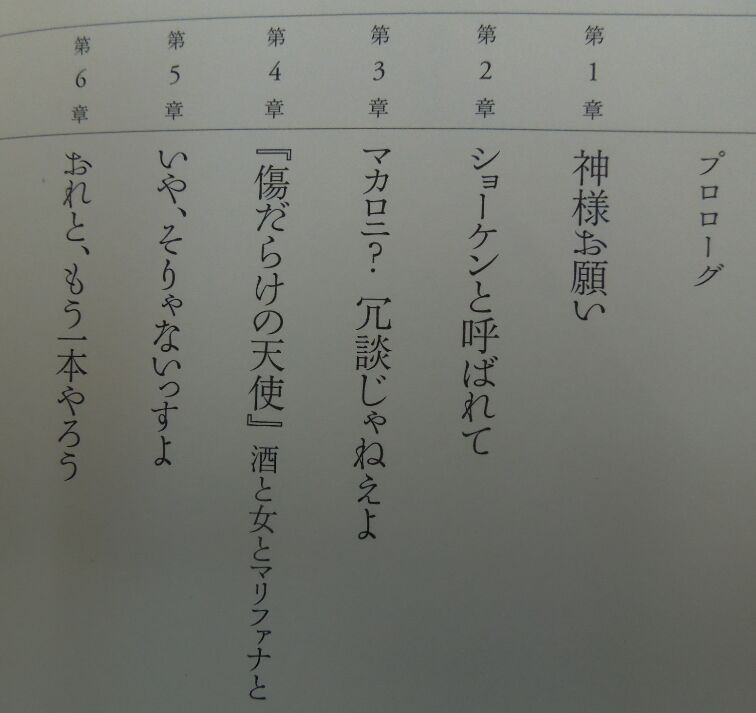 プロローグ
第1章 神様お願い
第2章 ショーケンと呼ばれて
第3章 マカロニ? 冗談じゃねえよ
第4章 『傷だらけの天使』酒と女とマリファナと
第5章 いや、そりゃないっすよ
第6章 おれと、もう一本やろう